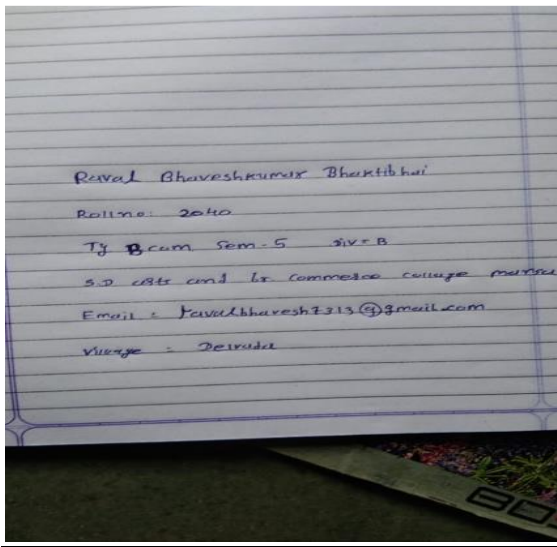 Raval Bhaveshkumar Bhaktibhai
Roll no: 2040
Ty Bcom Sem-5 div = B
S.D arts and br commerce college mansa
Email = ravalbhavesh7313@gmail.com
Village = Delvada
BO